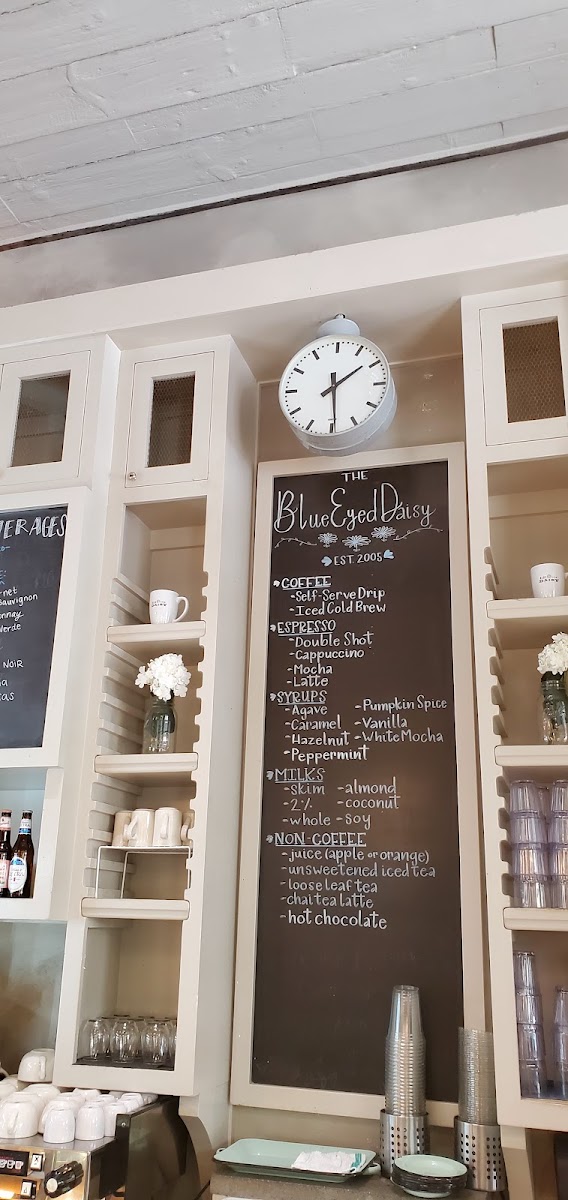 THE
Blue Eyed Daisy
EST. 2005
COFFEE
-Self-Serve Drip
-Iced Cold Brew
ESPRESSO
-Double Shot
-Cappuccino
-Mocha
-Latte
SYRUPS
-Agave
-Caramel
-Hazelnut
-Peppermint
-Pumpkin Spice
-Vanilla
-White Mocha
MILKS
-skim
-2%
-whole
-almond
-coconut
-soy
NON-COFFEE
-juice (apple or orange)
-unsweetened iced tea
-loose leaf tea
-chai tea latte
-hot chocolate
Sauvignon
Verde
NOIR